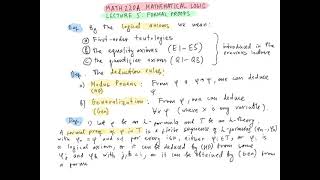 MATH 220A MATHEMATICAL LOGIC
LECTURE 5: FORMAL PROOFS
Def. By the logical axioms we mean:
a) First-order tautologies
b) the equality axioms (E1-E5)
c) the quantifier axioms (Q1-Q3)
introduced in the previous lecture
Def. The deduction rules:
a) Modus Ponens: From φ, φ→ψ, one can deduce ψ
(MP)
b) Generalization: From φ, one can deduce
(Gen) ∀x φ (where x is any variable).
Def. 1) Let φ be an L-formula and T be an L-theory.
A formal proof of φ in T is a finite sequence of L-formulas
with = φ and s.t. for every i≤n, either φi ∈ T, or φi is a
logical axiom, or it can be deduced by (MP) from some
φj and φk with j,k<i, or it can be obtained by (Gen) from
a formula